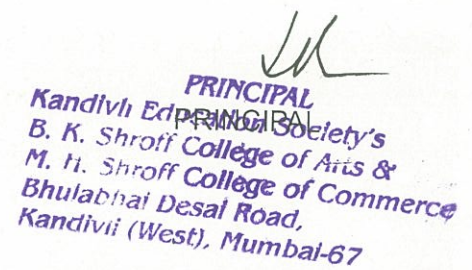 PRINCIPAL
Kandivli Education Society's
PRINCIPAL
B. K. Shroff College of Arts &
M. H. Shroff College of Commerce
Bhulabhai Desai Road,
Kandivli (West), Mumbai-67